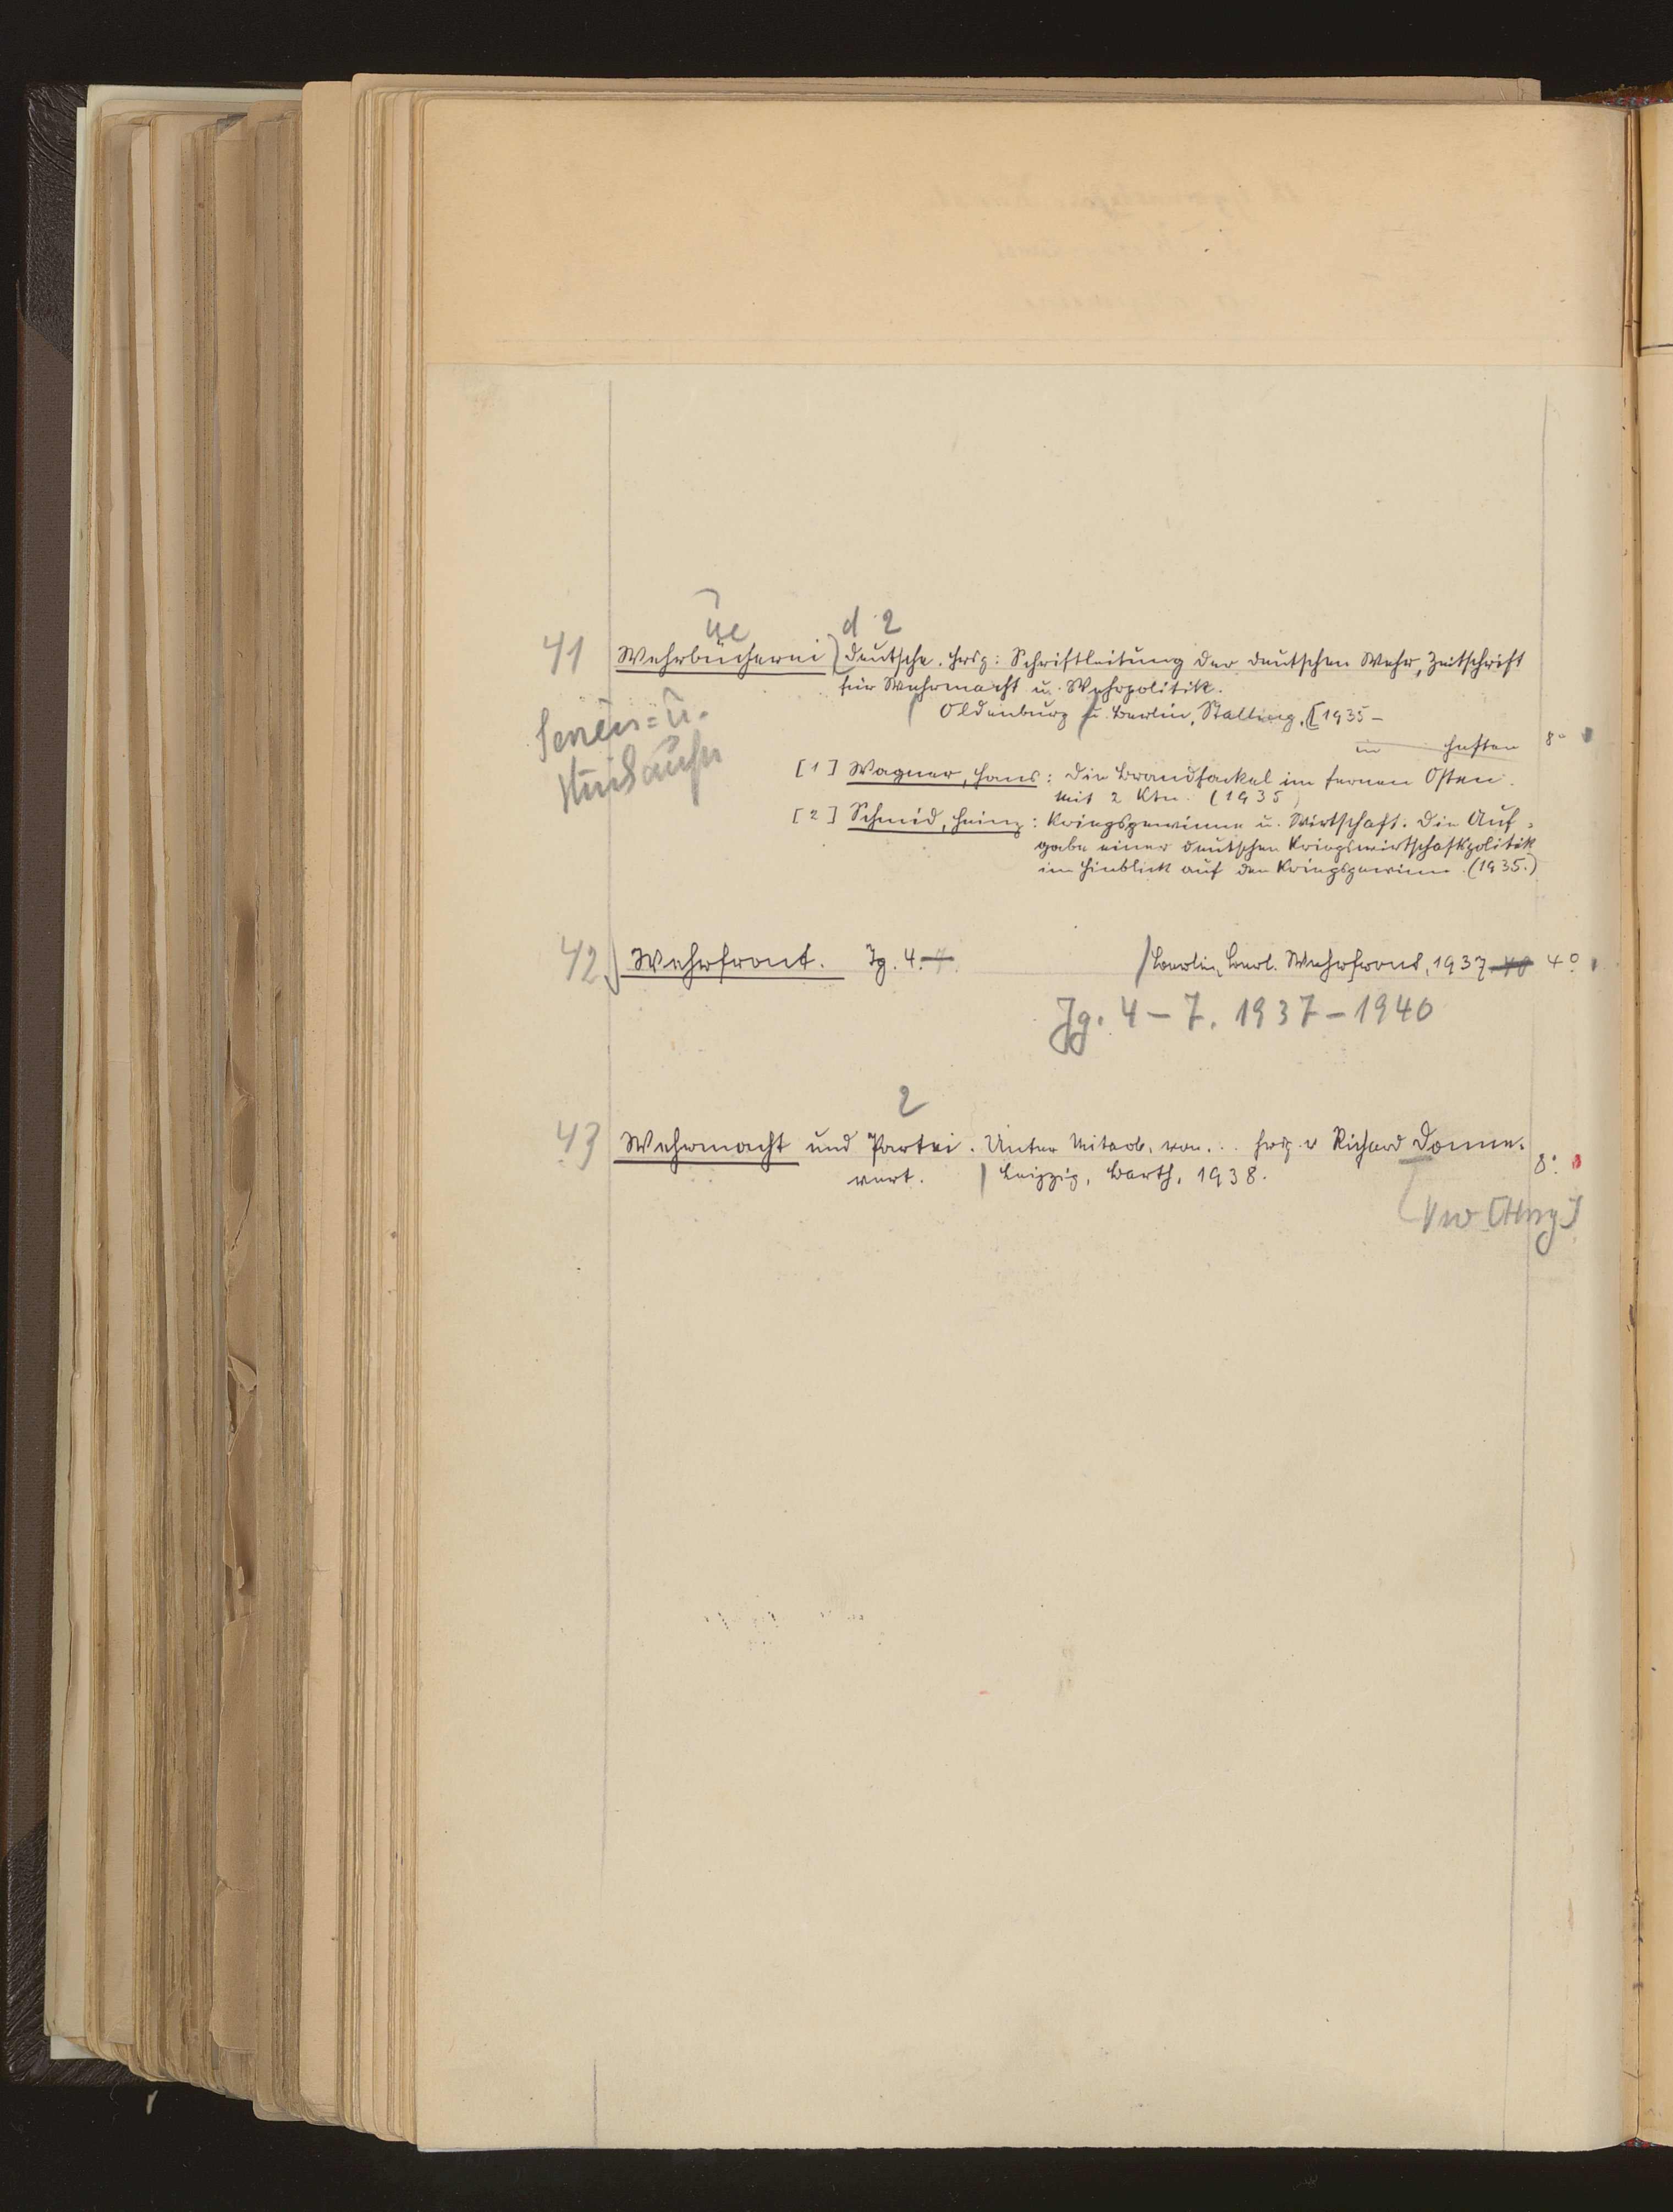 üe d 2
41 Wehrbücherei) deutsche. Hrsg: Schriftleitung der deutschen Wehr, Zeitschrift
für Wehrmacht u. Wehrpolitik.
Oldenburg u. Berlin, Stalling, [1935 –
in Heften 8°
Serien= u.
[1] Wagner, Hans: Die Brandfackel im fernen Osten.
Mit 2 Ktn. (1935)
[2] Schmid, Heinz: Kriegsgewinne u. Wirtschaft. Die Auf=
gabe einer deutschen Kriegswirtschaftspolitik
im Hinblick auf den Kriegsgewinn. (1935.)
42) Wehrfront. Jg. 4.–7. Berlin, Berl. Wehrfront, 1937–40 4°
Jg. 4–7. 1937–1940
2
43 Wehrmacht und Partei. Unter Mitarb. von... hrsg. v Richard Donne-
vert. Leipzig, Barth, 1938. 8°
Vw [Hrsg]